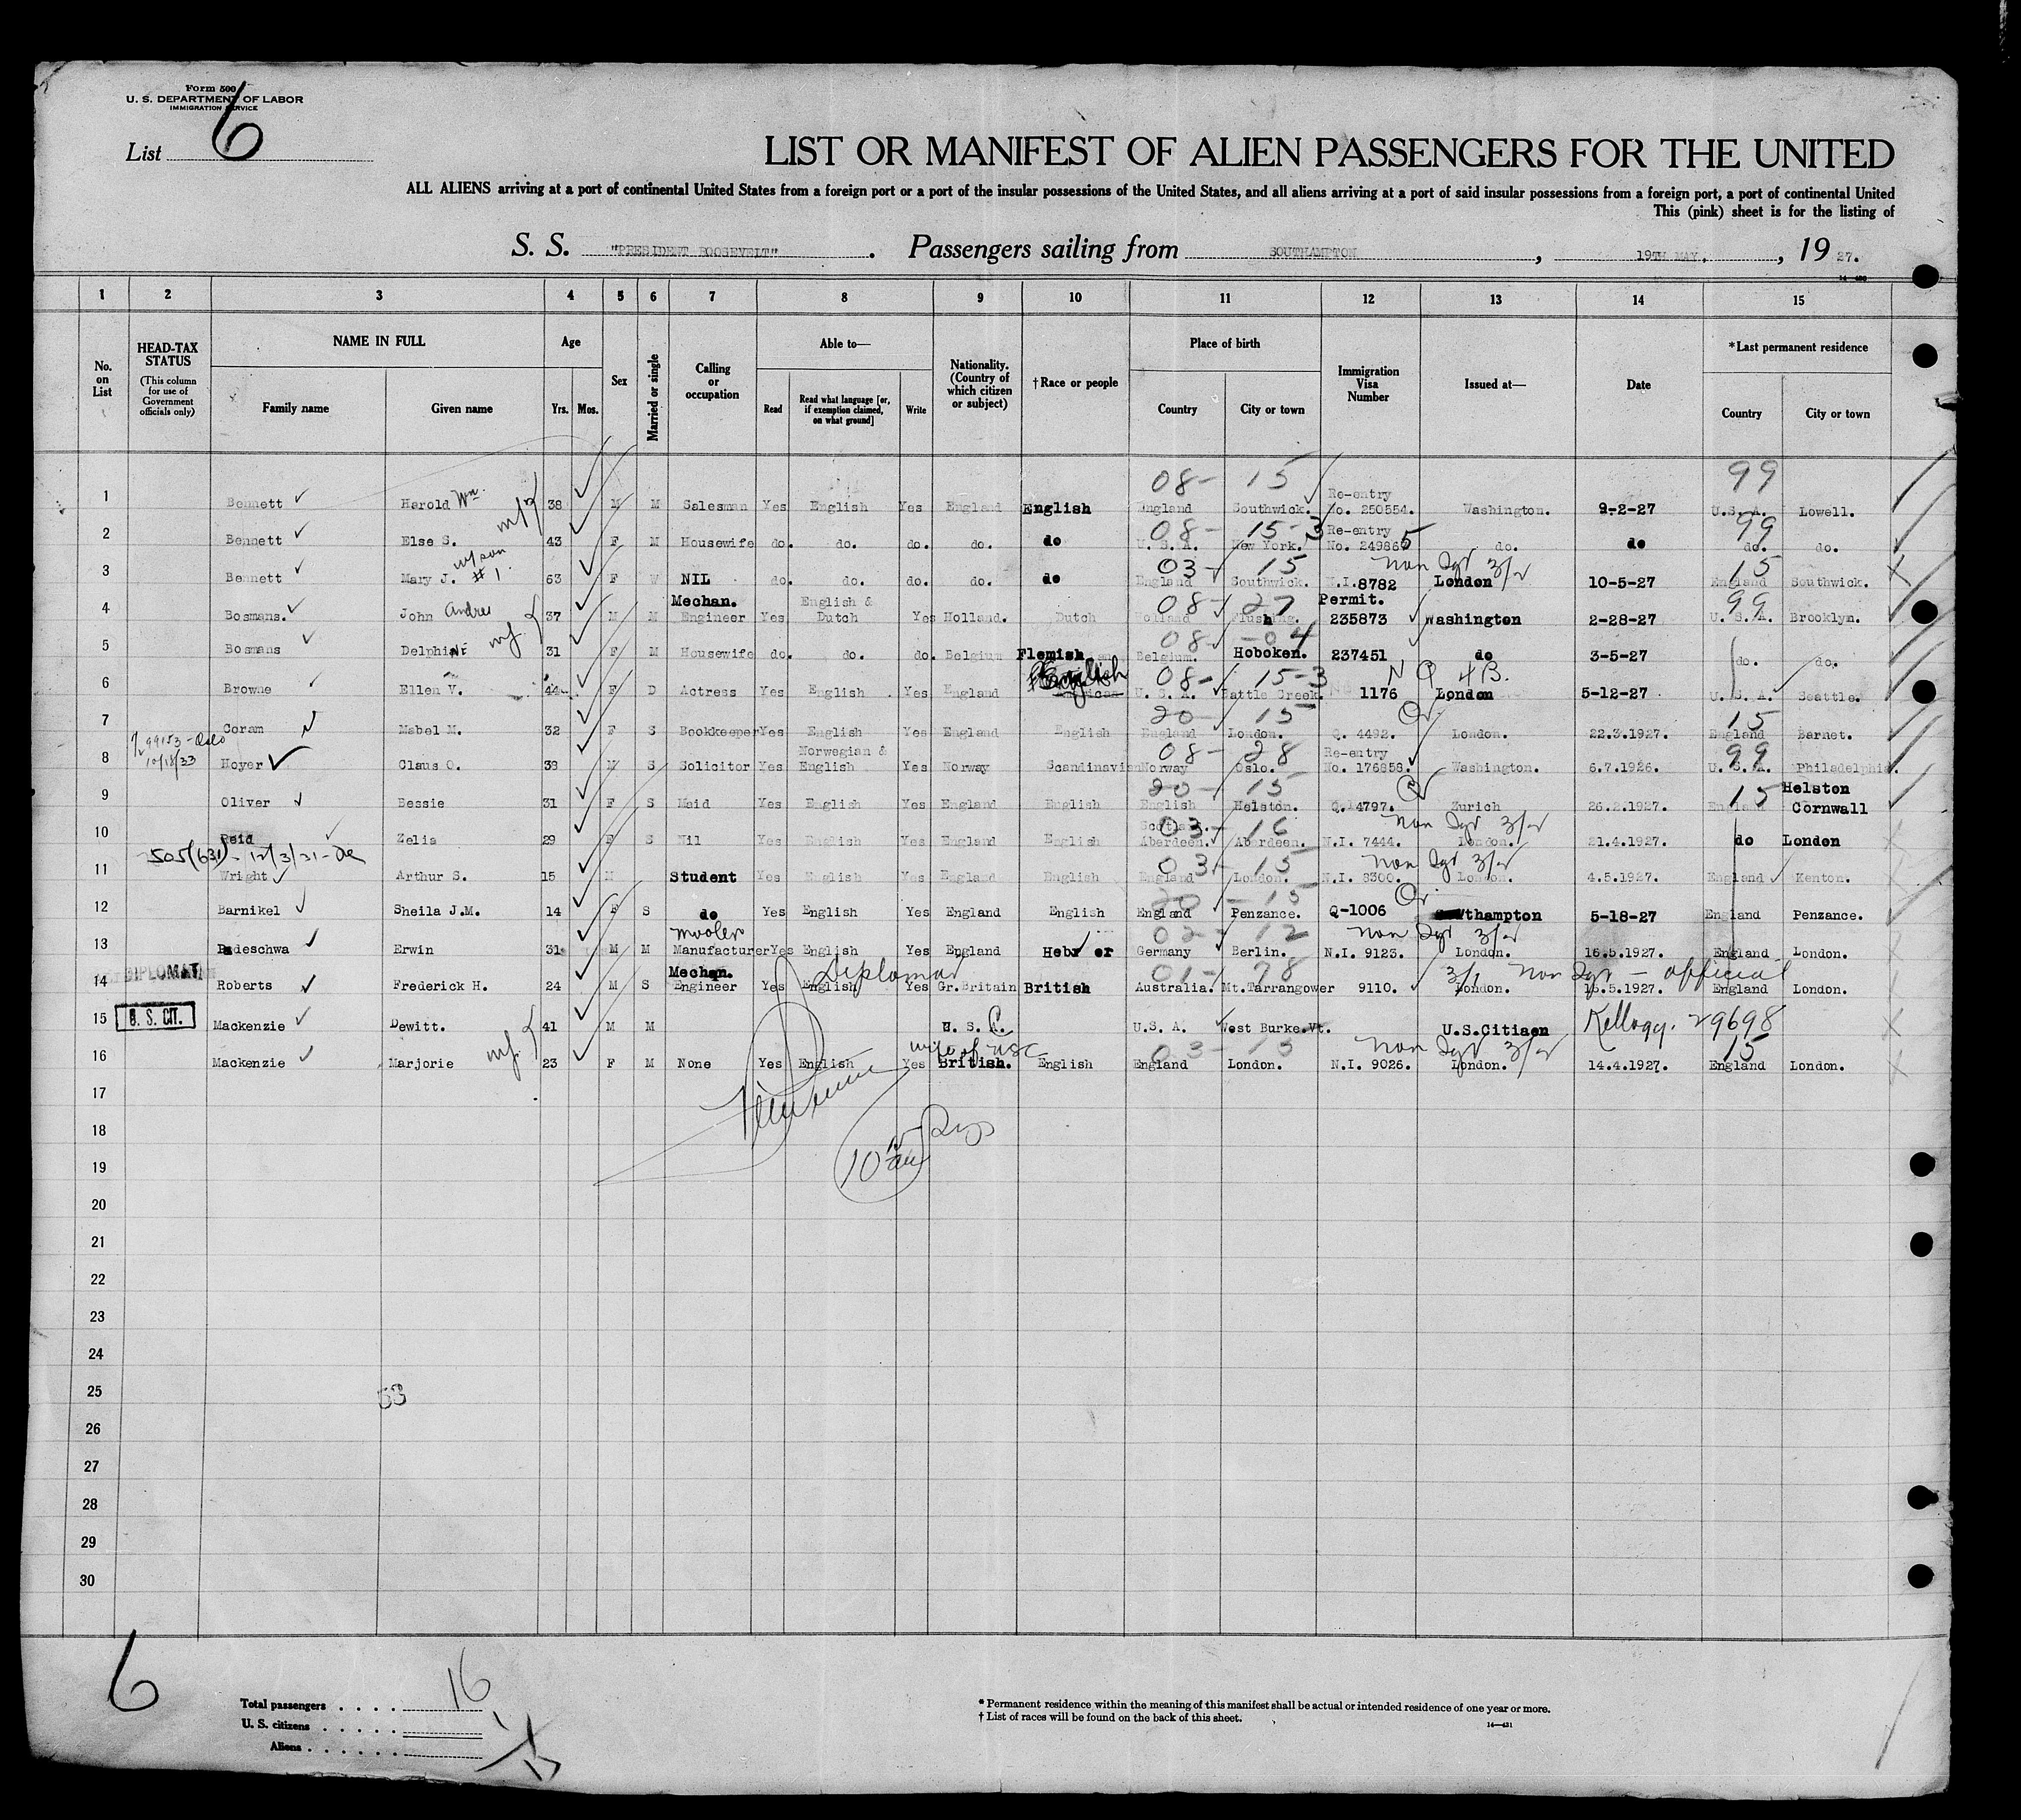 Form 500
U. S. DEPARTMENT OF LABOR
IMMIGRATION SERVICE
List 6
LIST OR MANIFEST OF ALIEN PASSENGERS FOR THE UNITED
ALL ALIENS arriving at a port of continental United States from a foreign port or a port of the insular possessions of the United States, and all aliens arriving at a port of said insular possessions from a foreign port, a port of continental United
This (pink) sheet is for the listing of
S. S. "PRESIDENT ROOSEVELT". Passengers sailing from SOUTHAMPTON, 19TH MAY., 19 27.
14—430
1 2 3 4 5 6 7 8 9 10 11 12 13 14 15
No. on List
HEAD-TAX STATUS (This column for use of Government officials only)
NAME IN FULL Family name Given name
Age Yrs. Mos.
Sex
Married or single
Calling or occupation
Able to— Read Read what language [or, if exemption claimed, on what ground] Write
Nationality. (Country of which citizen or subject)
†Race or people
Place of birth Country City or town
Immigration Visa Number
Issued at—
Date
*Last permanent residence Country City or town
08- 15 99
1 Bennett Harold Wm. 38 M M Salesman Yes English Yes England English England Southwick. Re-entry No. 250554. Washington. 9-2-27 U.S.A. Lowell.
08- 15-3 99
2 Bennett Else S. 43 F M Housewife do. do. do. do. do U.S.A. New York. Re-entry No. 249865 do. do do. do.
w/son #1 03- 15 15
3 Bennett Mary J. 63 F W NIL do. do. do. do. do England Southwick. N.I.8782 London 10-5-27 England Southwick.
08- 27 99
4 Bosmans. John Andre 37 M M Mechan. Engineer Yes English & Dutch Yes Holland. Dutch Holland Flushing. Permit. 235873 Washington 2-28-27 U.S.A. Brooklyn.
08- -04
5 Bosmans Delphine 31 F M Housewife do. do. do. Belgium Flemish Belgium. Hoboken. 237451 do 3-5-27 do. do.
08- 15-3
6 Browne Ellen V. 44 F D Actress Yes English Yes England English U.S.A. Battle Creek. 1176 London 5-12-27 U.S.A. Seattle.
20- 15 15
7 Coram Mabel M. 32 F S Bookkeeper Yes English Yes England English England London. Q. 4492. London. 22.3.1927. England Barnet.
08- 28 99
8 Hoyer Claus O. 38 M S Solicitor Yes Norwegian & English Yes Norway Scandinavian Norway Oslo. Re-entry No. 176858. Washington. 6.7.1926. U.S.A. Philadelphia.
20- 15 15
9 Oliver Bessie 31 F S Maid Yes English Yes England English English Helston. Q. 4797. Zurich 26.2.1927. England Helston Cornwall
03- 16
10 Reid Zelia 29 F S Nil Yes English Yes England English Scotland. Aberdeen. Aberdeen. N.I. 7444. London. 21.4.1927. do London
03- 15
11 Wright Arthur S. 15 M Student Yes English Yes England English England London. N.I. 8300. London. 4.5.1927. England Kenton.
20- 15
12 Barnikel Sheila J.M. 14 F S do Yes English Yes England English England Penzance. Q-1006 thampton 5-18-27 England Penzance.
02- 12
13 Badeschwa Erwin 31 M M Manufacturer Yes English Yes England Hebrew Germany Berlin. N.I. 9123. London. 16.5.1927. England London.
DIPLOMAT Diplomat 01- 78 official
14 Roberts Frederick H. 24 M S Mechan. Engineer Yes English Yes Gr.Britain British Australia. Mt.Tarrangower 9110. London. 16.5.1927. England London.
15 U. S. CIT. Mackenzie Dewitt. 41 M M U. S. C. U.S.A. West Burke.Vt. U.S.Citizen Kellogg. 29698
wife of USC 03- 15 15
16 Mackenzie Marjorie 23 F M None Yes English Yes British. English England London. N.I. 9026. London. 14.4.1927. England London.
17
18
19
20
21
22
23
24
25
26
27
28
29
30
6
Total passengers 16
U. S. citizens 1
Aliens 15
* Permanent residence within the meaning of this manifest shall be actual or intended residence of one year or more.
† List of races will be found on the back of this sheet.
14—431